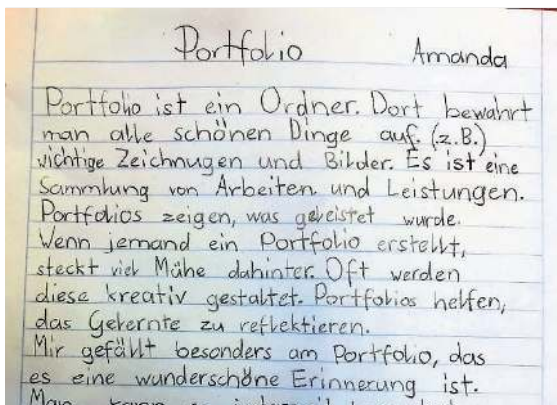 Portfolio Amanda
Portfolio ist ein Ordner. Dort bewahrt
man alle schönen Dinge auf. (z.B.)
wichtige Zeichnugen und Bilder. Es ist eine
Sammlung von Arbeiten und Leistungen.
Portfolios zeigen, was geleistet wurde.
Wenn jemand ein Portfolio erstellt,
steckt viel Mühe dahinter. Oft werden
diese kreativ gestaltet. Portfolios helfen,
das Gelernte zu reflektieren.
Mir gefällt besonders am Portfolio, das
es eine wunderschöne Erinnerung ist.
Man kann